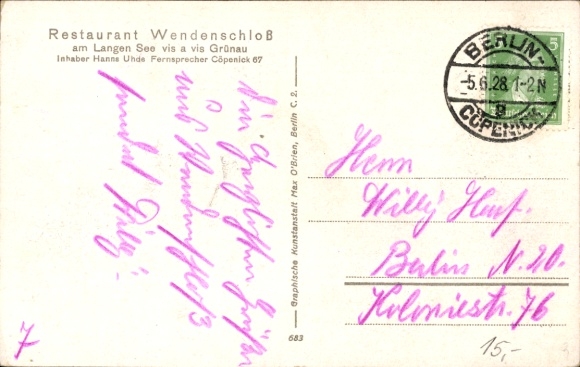 Restaurant Wendenschloß
am Langen See vis a vis Grünau
Inhaber Hanns Uhde Fernsprecher Cöpenick 67
Die herzlichsten Grüße
aus Wendenschloß
sendet Willy
7
Graphische Kunstanstalt Max O'Brien, Berlin C. 2.
683
BERLIN-
-5.6.28. 1-2N
g
CÖPENICK
5
Herrn
Willy
Berlin N. 20.
Koloniestr. 76
15,-